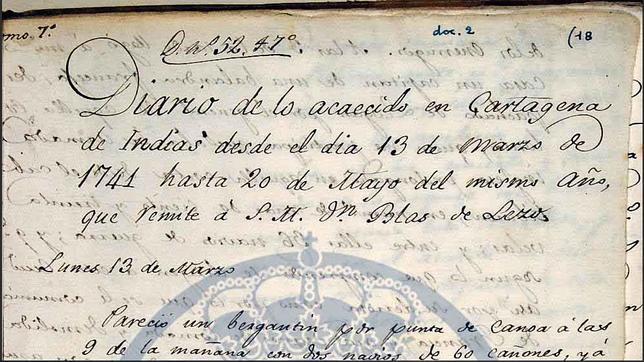 omo. 7º
D. nº. 52. 47º
doc. 2
(18
Diario de lo acaecido en Cartagena
de Indias desde el dia 13 de Marzo de
1741 hasta 20 de Mayo del mismo Año,
que remite á S. M. Dn Blas de Lezo.
Lunes 13 de Marzo
Pareció un bergantin por punta de canoa á las
9 de la mañana con dos navios de 60 cañones, y á